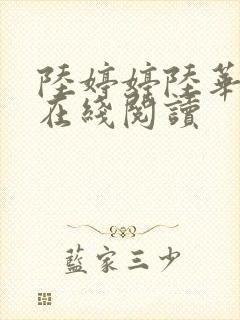 陸婷婷陸華
在綫閱讀
藍家三少